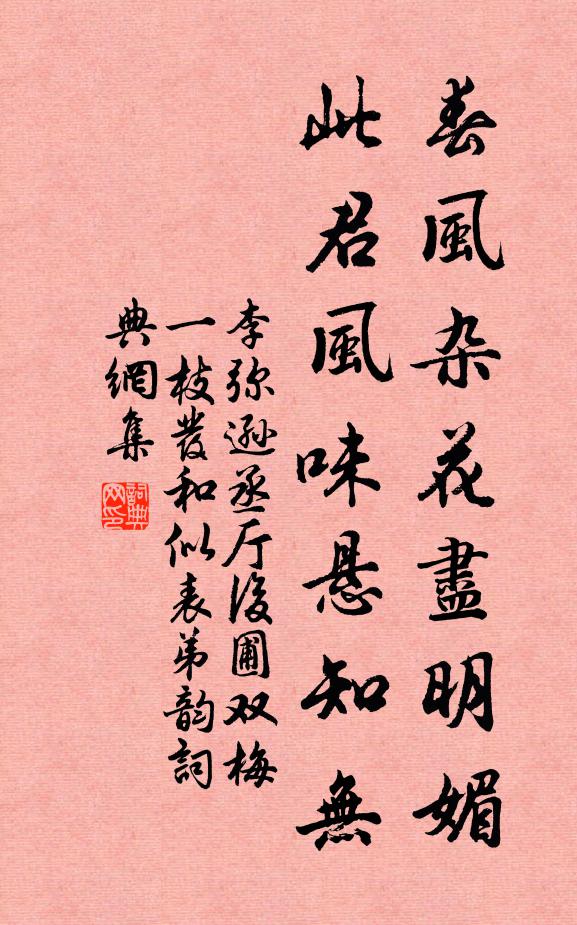 春風杂花盡明媚
此君風味悬知無
李弥遜丞厅後圃双梅
一枝發和似表弟韵詞
典網集
詞典
网印